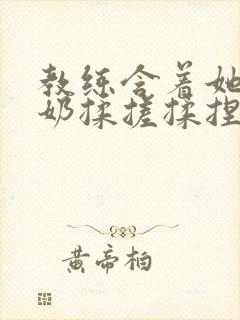 教练含着她
奶揉搓揉捏
黄帝柏